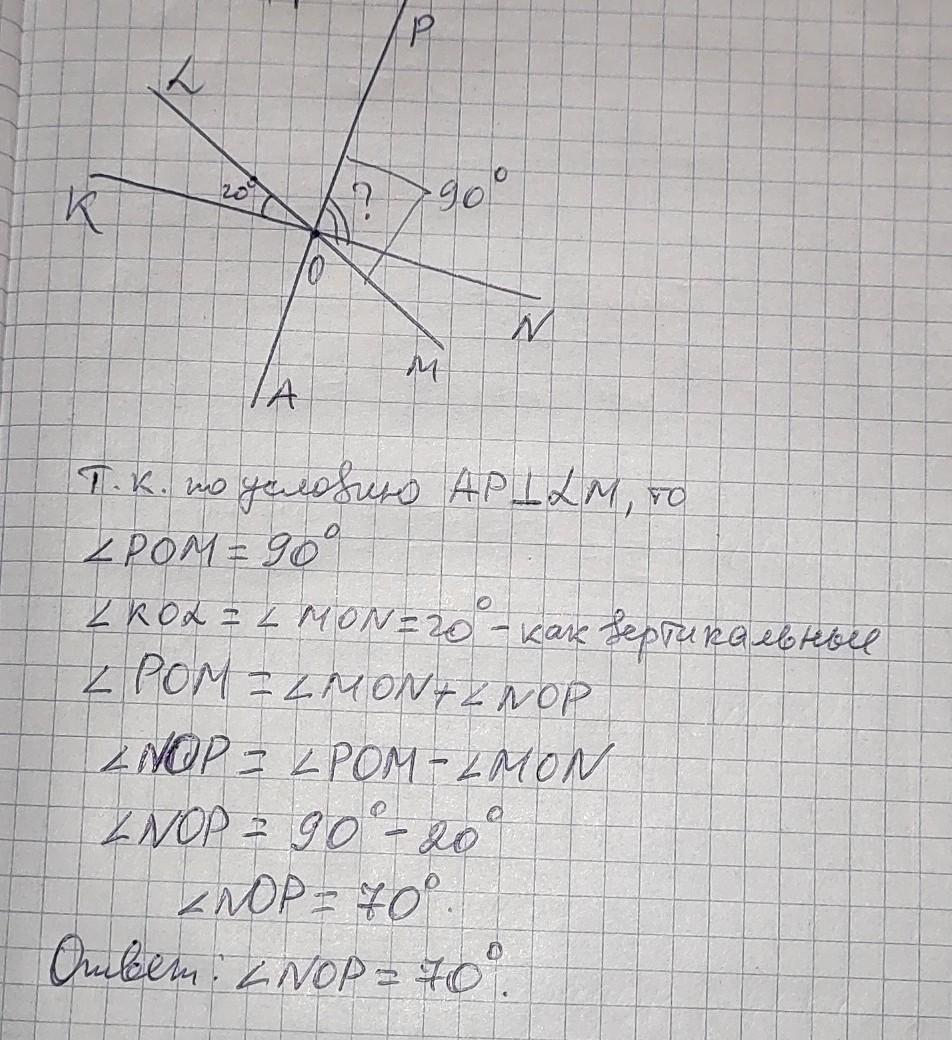 P
L
K
20°
?
90°
O
N
M
A
Т.к. по условию AP⊥LM, то
∠POM = 90°
∠KOL = ∠MON = 20° - как вертикальные
∠POM = ∠MON + ∠NOP
∠NOP = ∠POM - ∠MON
∠NOP = 90° - 20°
∠NOP = 70°.
Ответ: ∠NOP = 70°.